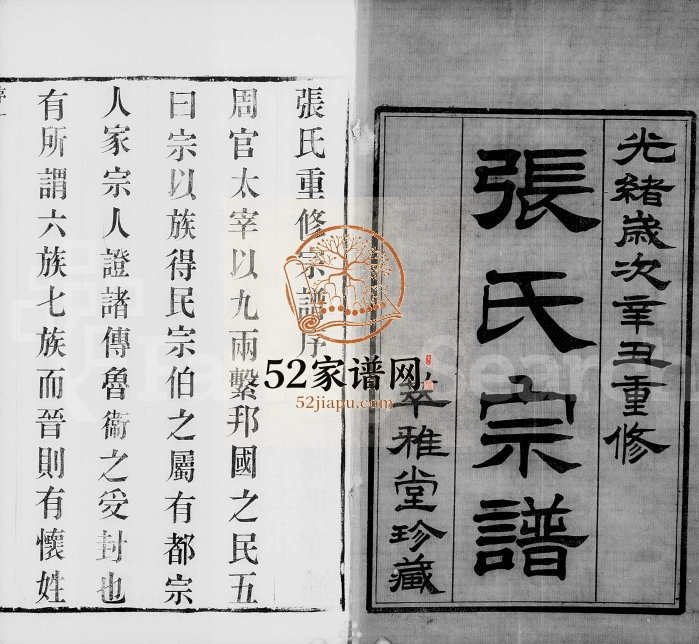 光緒歲次辛丑重修
張氏宗譜
萃雅堂珍藏
張氏重修宗譜序
周官太宰以九兩繫邦國之民五
曰宗以族得民宗伯之屬有都宗
人家宗人證諸傳魯衞之受封也
有所謂六族七族而晉則有懷姓
52家谱网
52jiapu.com